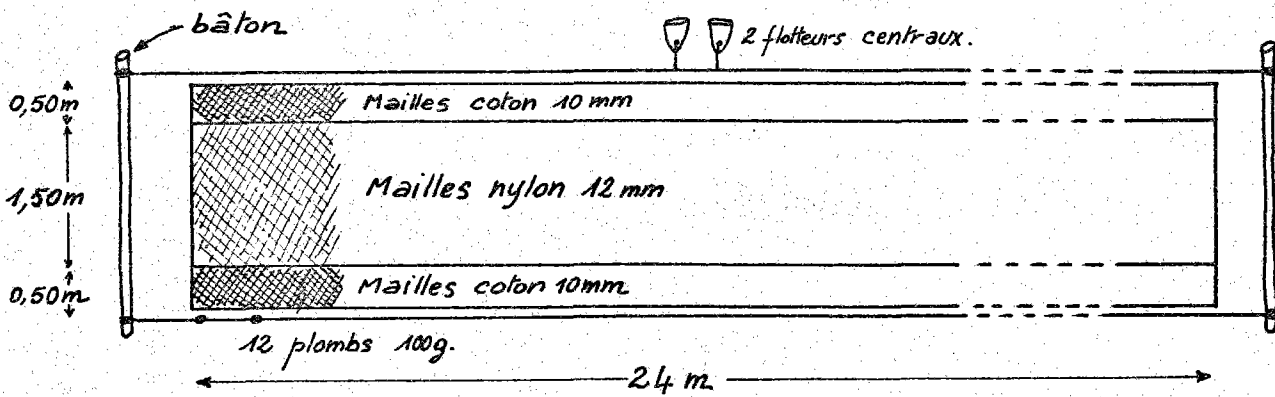 bâton
2 flotteurs centraux.
0,50m
Mailles coton 10 mm
1,50m
Mailles nylon 12 mm
0,50m
Mailles coton 10mm
12 plombs 100g.
24 m